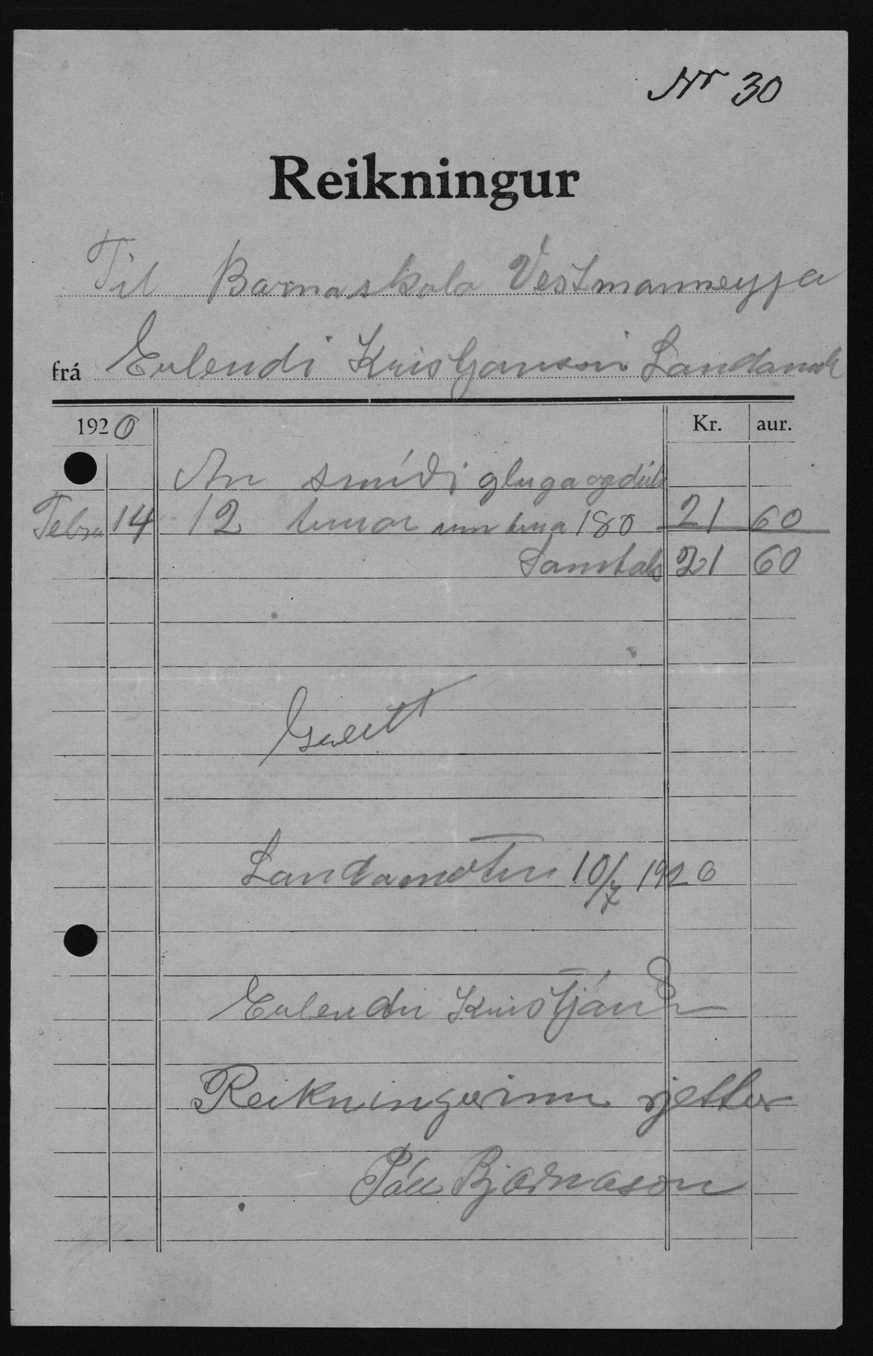 Nr 30
Reikningur
Til Barnaskola Vestmanneyja
frá Erlendi Kristjanssni
1920 Kr. aur.
smíði gluga og
Febru 14 12 timar um tima 180 21 60
Samtals 21 60
Landamótum 10/7 1920
Erlendur Kristjáns
Reikningurinn rjettur
Páll Bjarnason